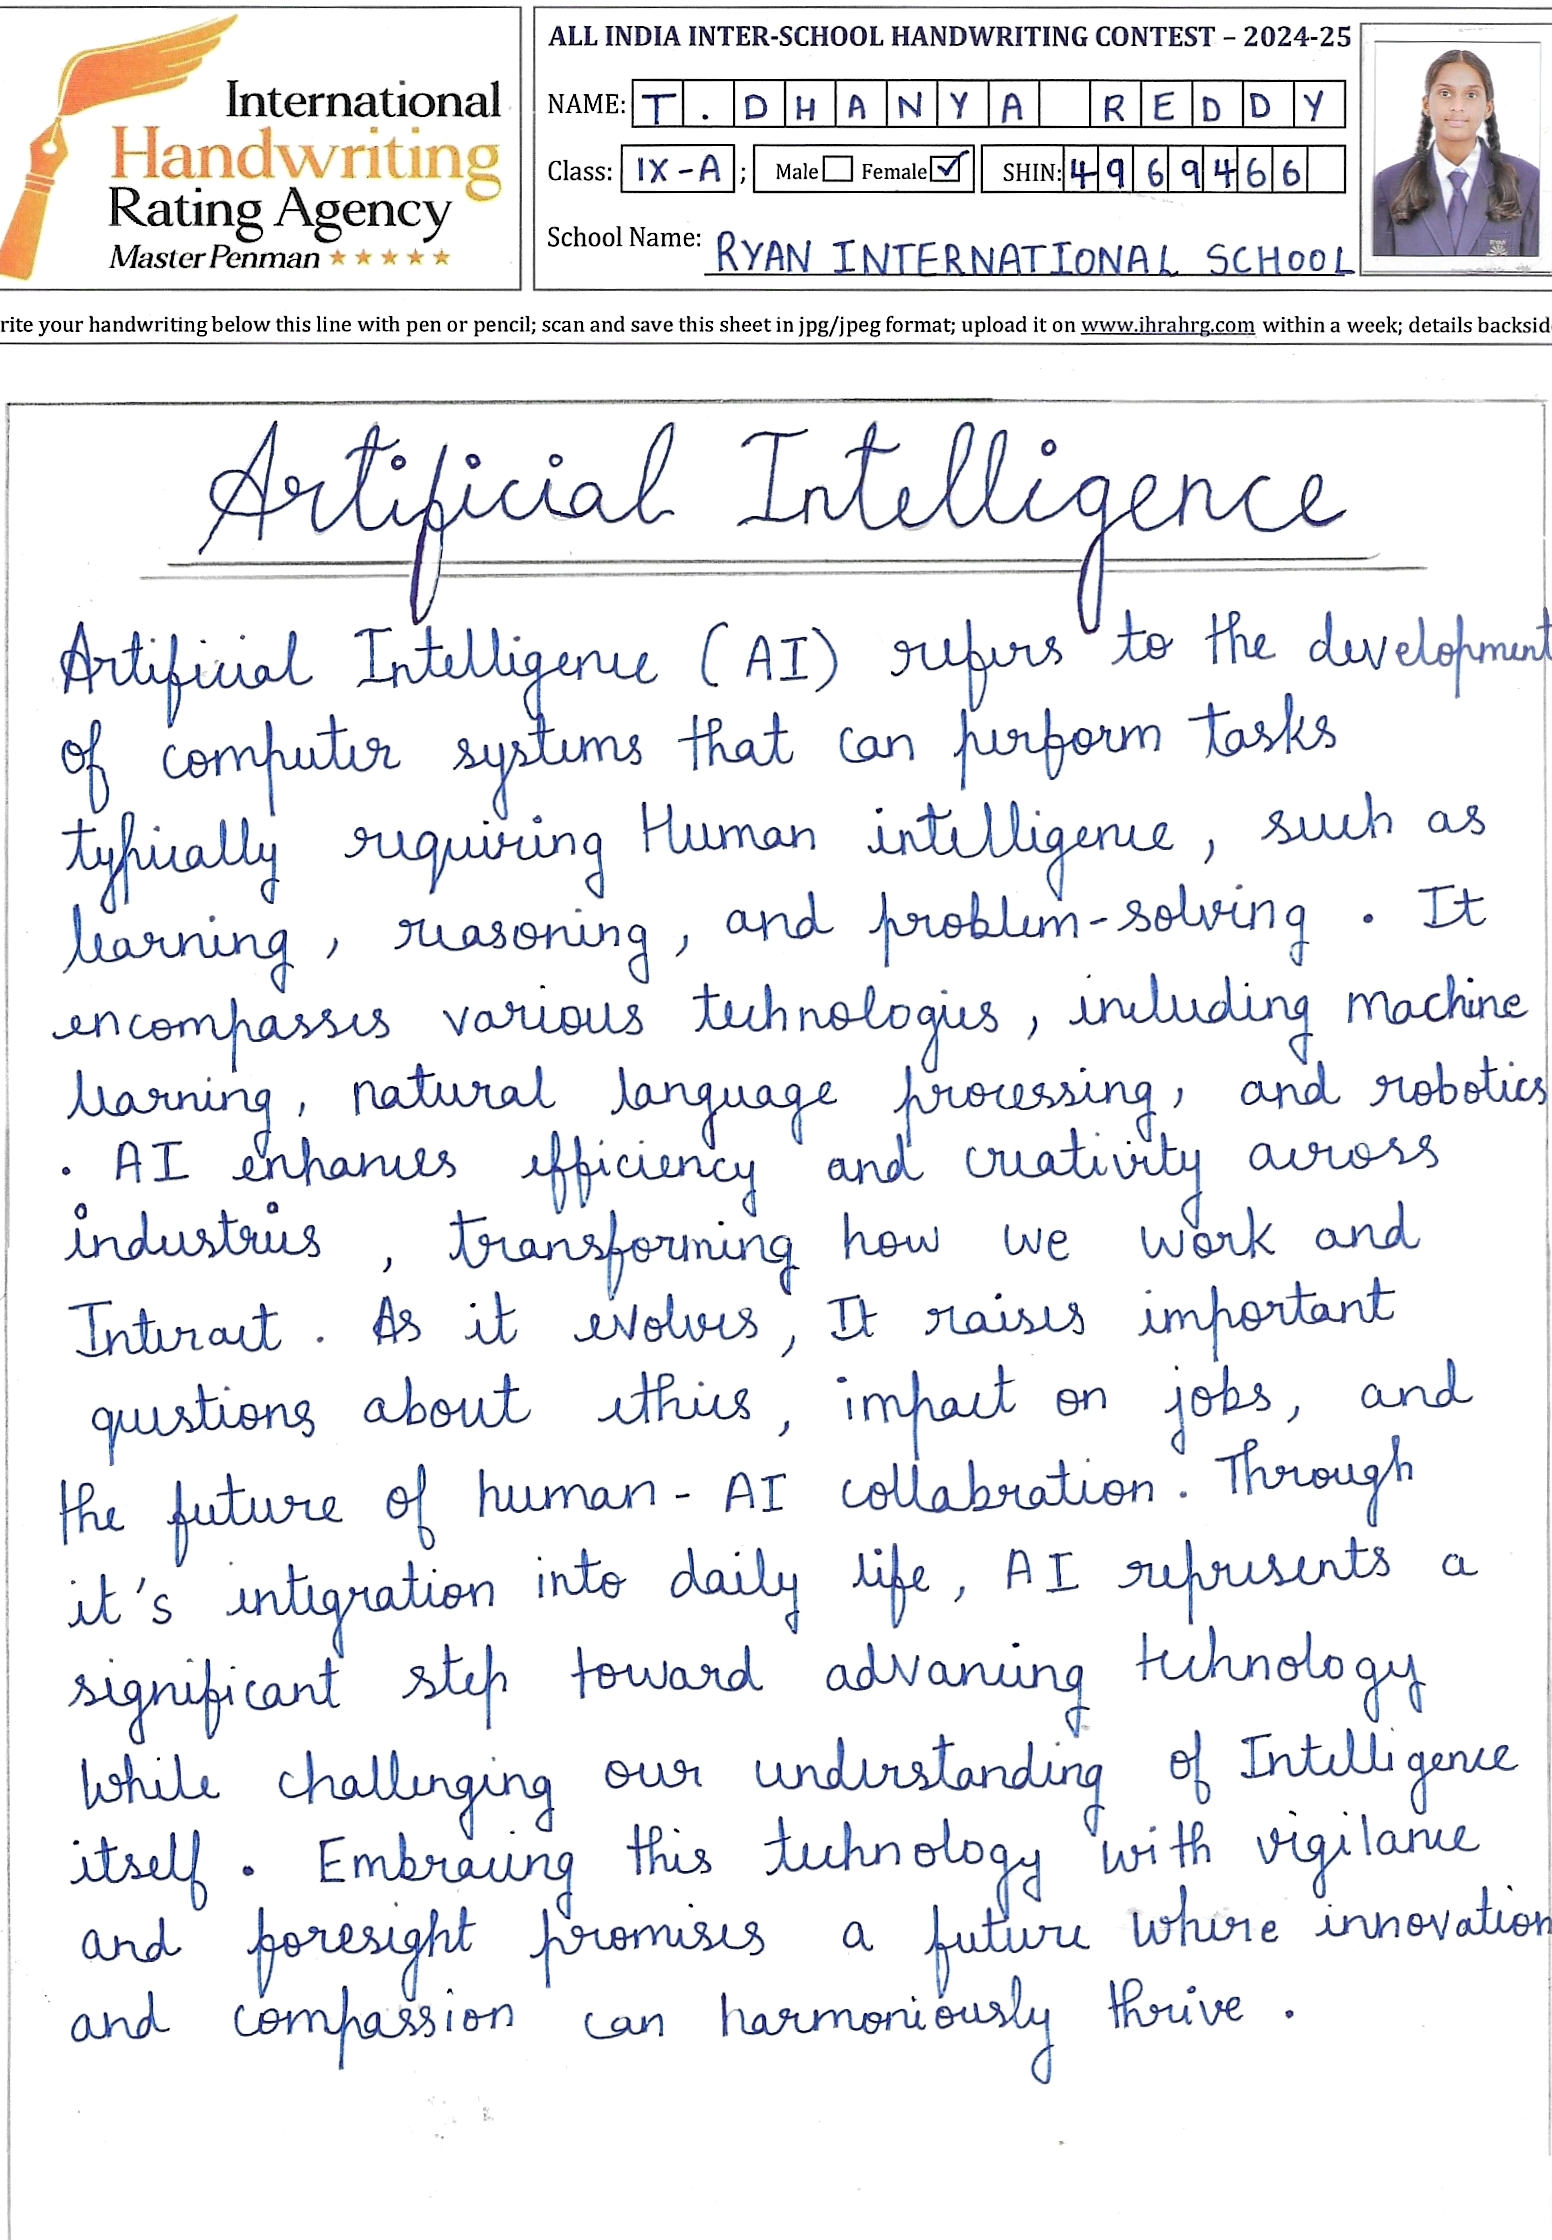 International
Handwriting
Rating Agency
Master Penman
ALL INDIA INTER-SCHOOL HANDWRITING CONTEST – 2024-25
NAME: T. DHANYA REDDY
Class: IX-A ; Male Female ✓ SHIN: 4969466
School Name: RYAN INTERNATIONAL SCHOOL
rite your handwriting below this line with pen or pencil; scan and save this sheet in jpg/jpeg format; upload it on www.ihrahrg.com within a week; details backsid
Artificial Intelligence
Artificial Intelligence (AI) refers to the development
of computer systems that can perform tasks
typically requiring Human intelligence, such as
learning, reasoning, and problem-solving. It
encompasses various technologies, including machine
learning, natural language processing, and robotics
. AI enhances efficiency and creativity across
industries, transforming how we work and
Interact. As it evolves, It raises important
questions about ethics, impact on jobs, and
the future of human-AI collabration. Through
it's integration into daily life, AI represents a
significant step toward advancing technology
While challenging our understanding of Intelligence
itself. Embracing this technology with vigilance
and foresight promises a future where innovation
and compassion can harmoniously thrive.